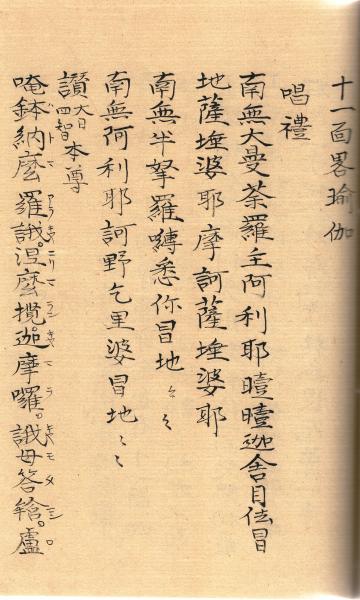 十一面畧瑜伽
唱禮
南無大曼荼羅主阿利耶曀曀迦舎目佉冒
地薩埵婆耶摩訶薩埵婆耶
南無半拏羅縛悉你冒地〻〻
南無阿利耶訶野乞里婆冒地〻〻
讃大日四智本尊
唵鉢納麽羅誐涅麽攬迦摩囉誐母答䤴盧